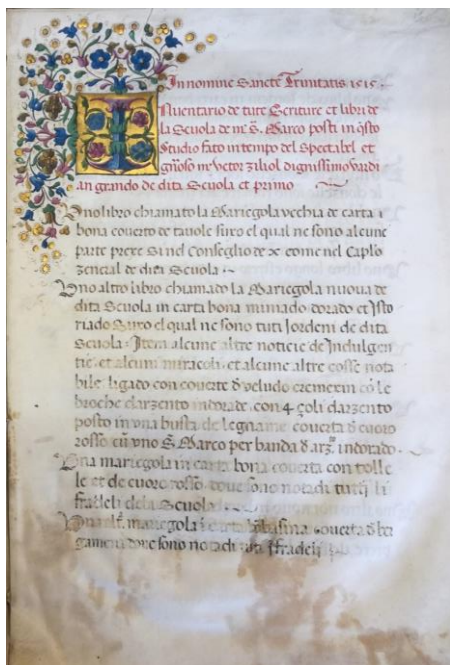 In nomine Sancte Trinitatis 1515.
Inventario de tute Scriture et libri de
la Scuola de mis. S. Marco posti in qsto
Studio fato in tempo del Spectabel et
gñoso m̃ Vector ziliol dignissimo Vardi
an grando de dita Scuola et primo
Vno libro chiamato la Mariegola vechia de carta
bona coverto de tavole suro el qual ne sono alcune
parte prexe Si nel Conseglio de x come nel Caplo
zeneral de dita Scuola
Vno altro libro chiamado la Mariegola nuova de
dita Scuola in carta bona miniado dorado et Isto
riado Suro el qual ne sono tuti Jordeni de dita
Scuola. Item alcune altre noticie de Indulgen
tie et alcuni miracoli et alcune altre cosse nota
bile, ligado con coverte d veludo cremexin cō le
broche darzento indorade, con 4 çoli darzento
posto in una busta de legname coverta d cuoro
rosso cū vno S. Marco per banda d arz.to indorado.
Vna mariegola in carta bona coverta con tolle
le et de cuoro rosso dove sono notadi tutti li
fradeli dela Scuola
Vna altr. mariegola ī carta bōbasina coverta d ber
gamena dove sono notadi fradeli